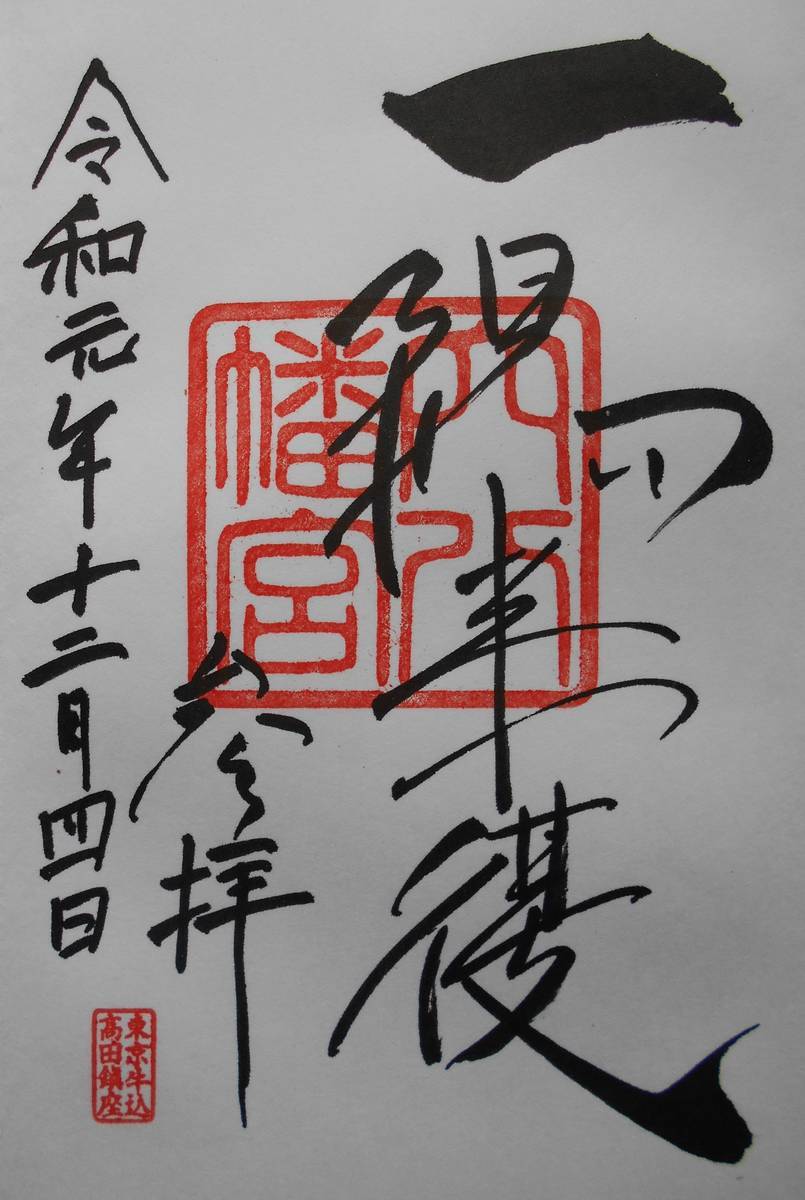 一陽来復
穴八
幡宮
参拝
令和元年十二月四日
東京牛込
高田鎮座